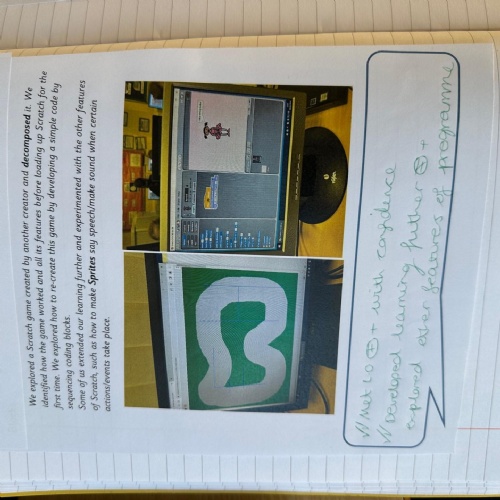 We explored a Scratch game created by another creator and decomposed it. We
identified how the game worked and all its features before loading up Scratch for the
first time. We explored how to re-create this game by developing a simple code by
sequencing coding blocks.
Some of us extended our learning further and experimented with the other features
of Scratch, such as how to make Sprites say speech/make sound when certain
actions/events take place.
✓✓ Met LO ☺+ with confidence
✓✓ Developed learning further ☺+
explored other features of programme